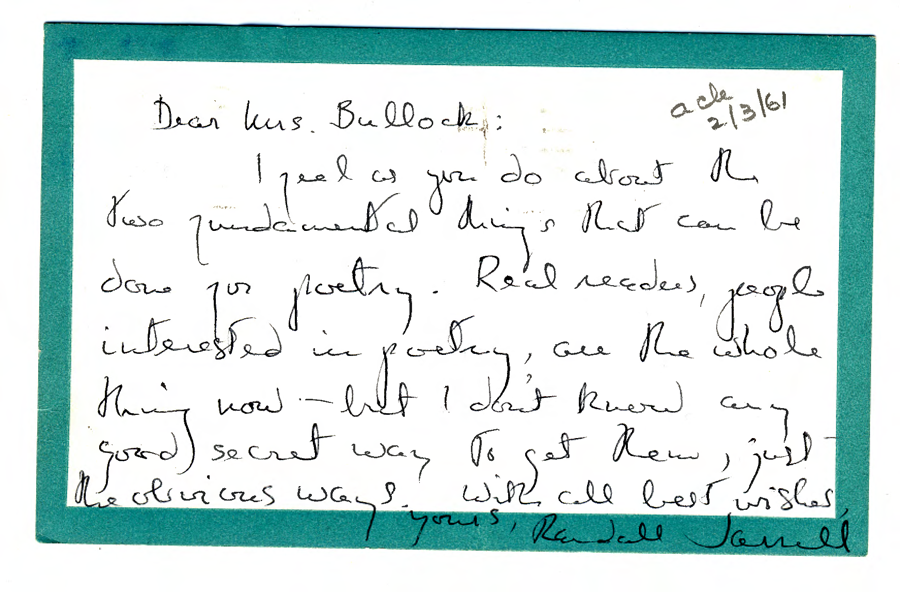 ack
2/3/61
Dear Mrs. Bullock:
I feel as you do about the
two fundamental things that can be
done for poetry. Real readers, people
interested in poetry, are the whole
thing now — but I don't know any
good secret way to get them, just
the obvious ways. With all best wishes,
yours, Randall Jarrell